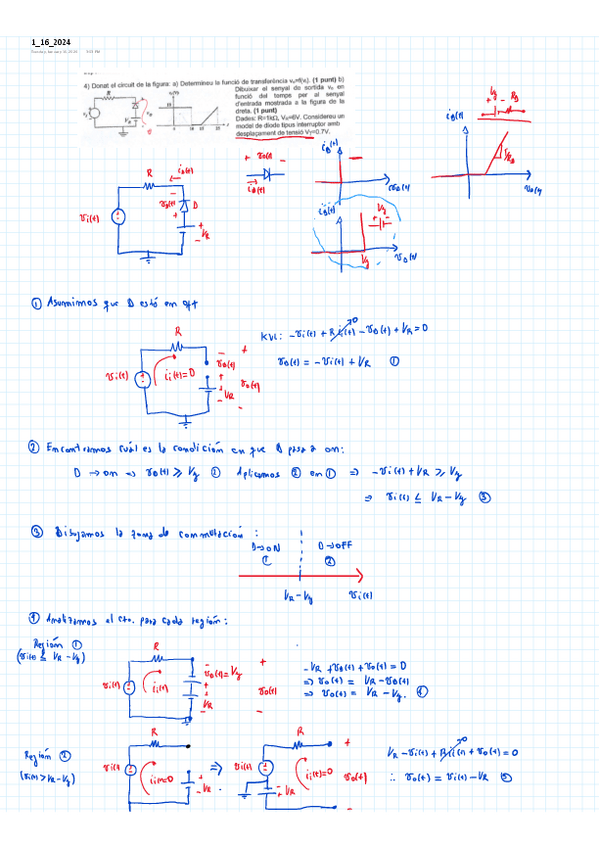 1_16_2024
4) Donat el circuit de la figura: a) Determineu la funció de transferència vₒ=f(vᵢ). (1 punt) b)
Dibuixar el senyal de sortida vₒ en
funció del temps per al senyal
d'entrada mostrada a la figura de la
dreta. (1 punt)
Dades: R=1kΩ, V_R=6V. Considereu un
model de díode tipus interruptor amb
desplaçament de tensió Vγ=0.7V.
① Asumimos que D está en off
KVL: -vi(t) + R ii(t) - vD(t) + VR = 0
vD(t) = -vi(t) + VR ①
② Encontramos cuál es la condición en que D pasa a on:
D → on ⇒ vD(t) ≥ Vγ ② Aplicamos ② en ① ⇒ -vi(t) + VR ≥ Vγ
⇒ vi(t) ≤ VR - Vγ ③
③ Dibujamos la zona de conmutación :
D→ON D→OFF
① ②
VR - Vγ vi(t)
④ Analizamos el cto. para cada región:
Región ①
(vi(t) ≤ VR - Vγ)
-VR + vD(t) + vo(t) = 0
⇒ vo(t) = VR - vD(t)
⇒ vo(t) = VR - Vγ. ④
Región ②
(vi(t) > VR - Vγ)
VR - vi(t) + R ii(t) + vo(t) = 0
∴ vo(t) = vi(t) - VR ⑤